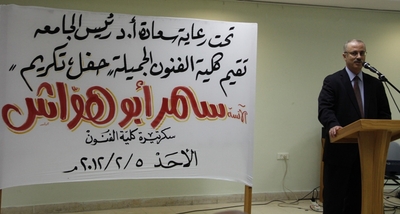 تحت رعاية سعادة أ.د رئيس الجامعة
تقيم كلية الفنون الجميلة "حفل تكريم"
الآنسة سمر أبو هواش
سكرتيرة كلية الفنون
الأحد ٢٠١٢/٢/٥ م